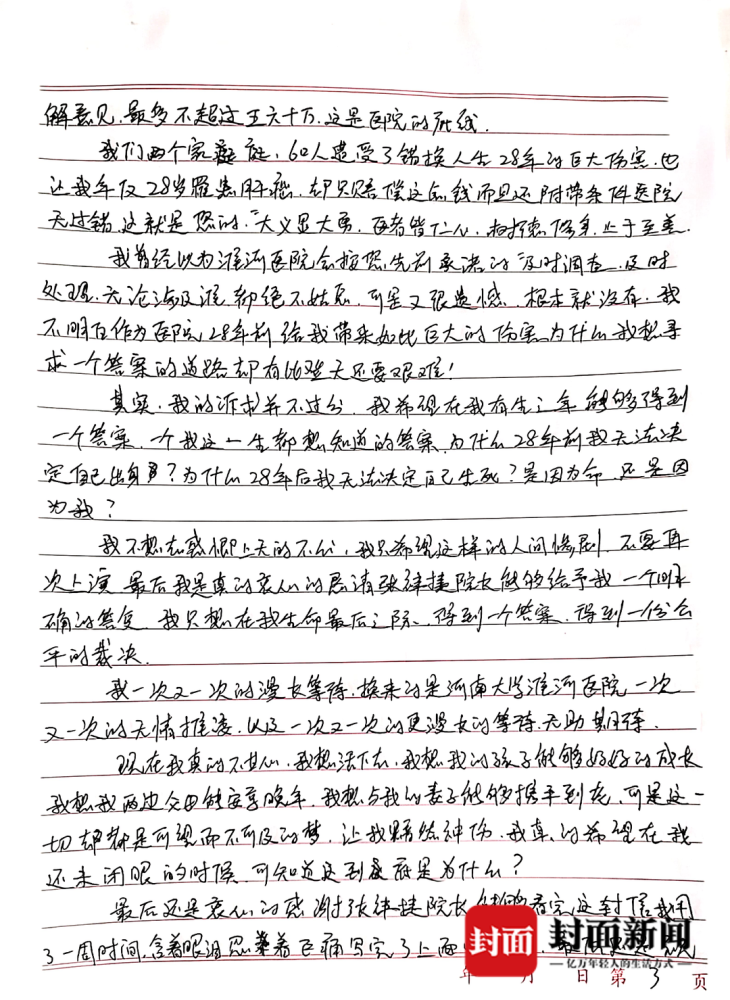 解意见，最多不超过五六十万，这是医院的底线。
我们两个家庭，60人遭受了错换人生28年的巨大伤害，也
让我年仅28岁罹患肝癌，却只赔偿这点钱而且还附带条件医院
无过错，这就是您的“大义显大勇，医者皆仁心，树德修身，止于至善。
我曾经以为淮河医院会按您先前承诺的“及时调查，及时
处理，无论涉及谁，都绝不姑息，可是又很遗憾，根本就没有，我
不明白作为医院28年前给我带来如此巨大的伤害，为什么我想寻
求一个答案的道路却有比登天还要艰难！
其实，我的诉求并不过分，我希望在我有生之年能够得到
一个答案，一个我这一生都想知道的答案，为什么28年前我无法决
定自己出身？为什么28年后我无法决定自己生死？是因为命，还是因
为我？
我不想去怨恨上天的不公，我只希望这样的人间惨剧，不要再
次上演，最后我是真的衷心的恳请张祎捷院长能够给予我一个明
确的答复，我只想在我生命最后之际，得到一个答案，得到一份公
平的裁决。
我一次又一次的漫长等待，换来的是河南大学淮河医院一次
又一次的无情推诿，以及一次又一次的更漫长的等待，无助期待。
现在我真的不甘心，我想活下去，我想我的孩子能够好好的成长
我想我两边父母能安享晚年，我想与我的妻子能够携手到老，可是这一
切却都是可望而不可及的梦，让我黯然神伤，我真的希望在我
还未闭眼的时候，可知道这到底是为什么？
最后还是衷心的感谢张祎捷院长能够看完这封信，我用
了一周时间，含着眼泪忍着巨痛写完了上面
封面 封面新闻
亿万年轻人的生活方式
年 月 日 第 3 页